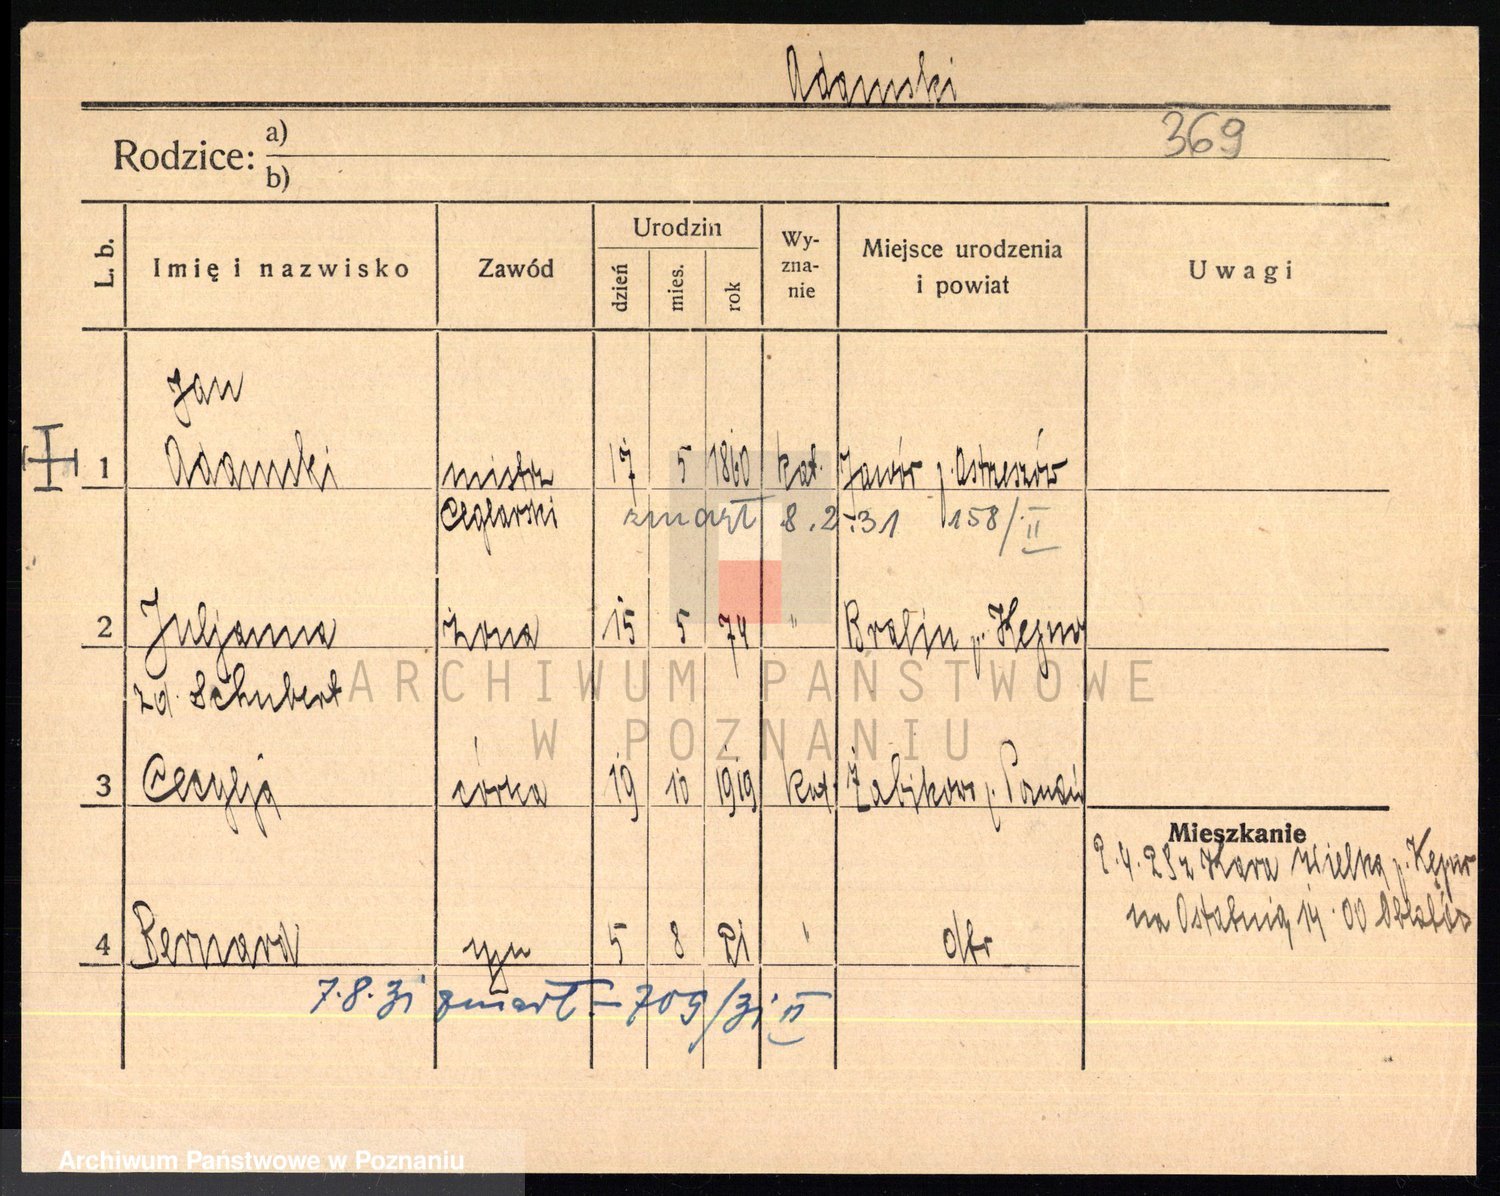 Adamski
369
Rodzice: a)
b)
L. b.
Imię i nazwisko
Zawód
Urodzin
dzień
mies.
rok
Wy-
zna-
nie
Miejsce urodzenia
i powiat
Uwagi
Jan
1 Adamski mistrz 17 5 1860 kat. Jawór p. Ostrzeszów
Ceglarski zmarł 8.2.-31 158/II
2 Juljanna żona 15 5 74 " Bralin p. Kępno
zd. Schubert
3 Cecylja córka 19 10 1919 kat. Żabikowo p. Poznań
Mieszkanie
2.4.28 z Wielka p. Kępno
na Ostatnią 14
4 Bernard syn 5 8 21 "
7.8.31 zmarł - 709/31 II
ARCHIWUM PAŃSTWOWE
W POZNANIU
Archiwum Państwowe w Poznaniu